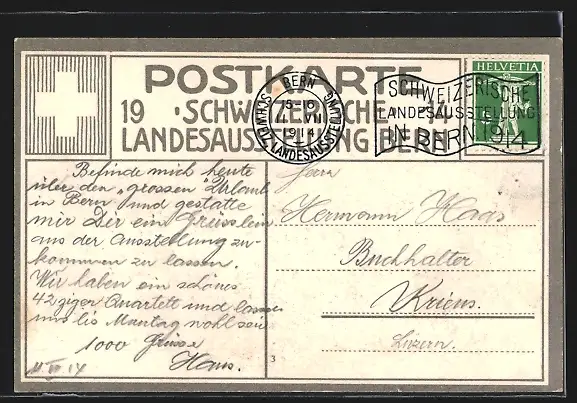 POSTKARTE
19 · SCHWEIZERISCHE · 14
LANDESAUSSTELLUNG BERN
BERN
SCHWEIZ. LANDESAUSSTELLUNG
1914
SCHWEIZERISCHE
LANDESAUSSTELLUNG
IN BERN 1914
HELVETIA
Befinde mich heute
über den „grossen" Urlaub
in Bern und gestatte
mir Dir ein Grüsslein
aus der Ausstellung zu-
kommen zu lassen.
Wir haben ein schönes
42ziger Quartett und lassen
uns bis Montag wohl sein
1000 Grüsse
Hans.
11. VII 14
Herrn
Hermann Haas
Buchhalter
Kriens.
Luzern.
3